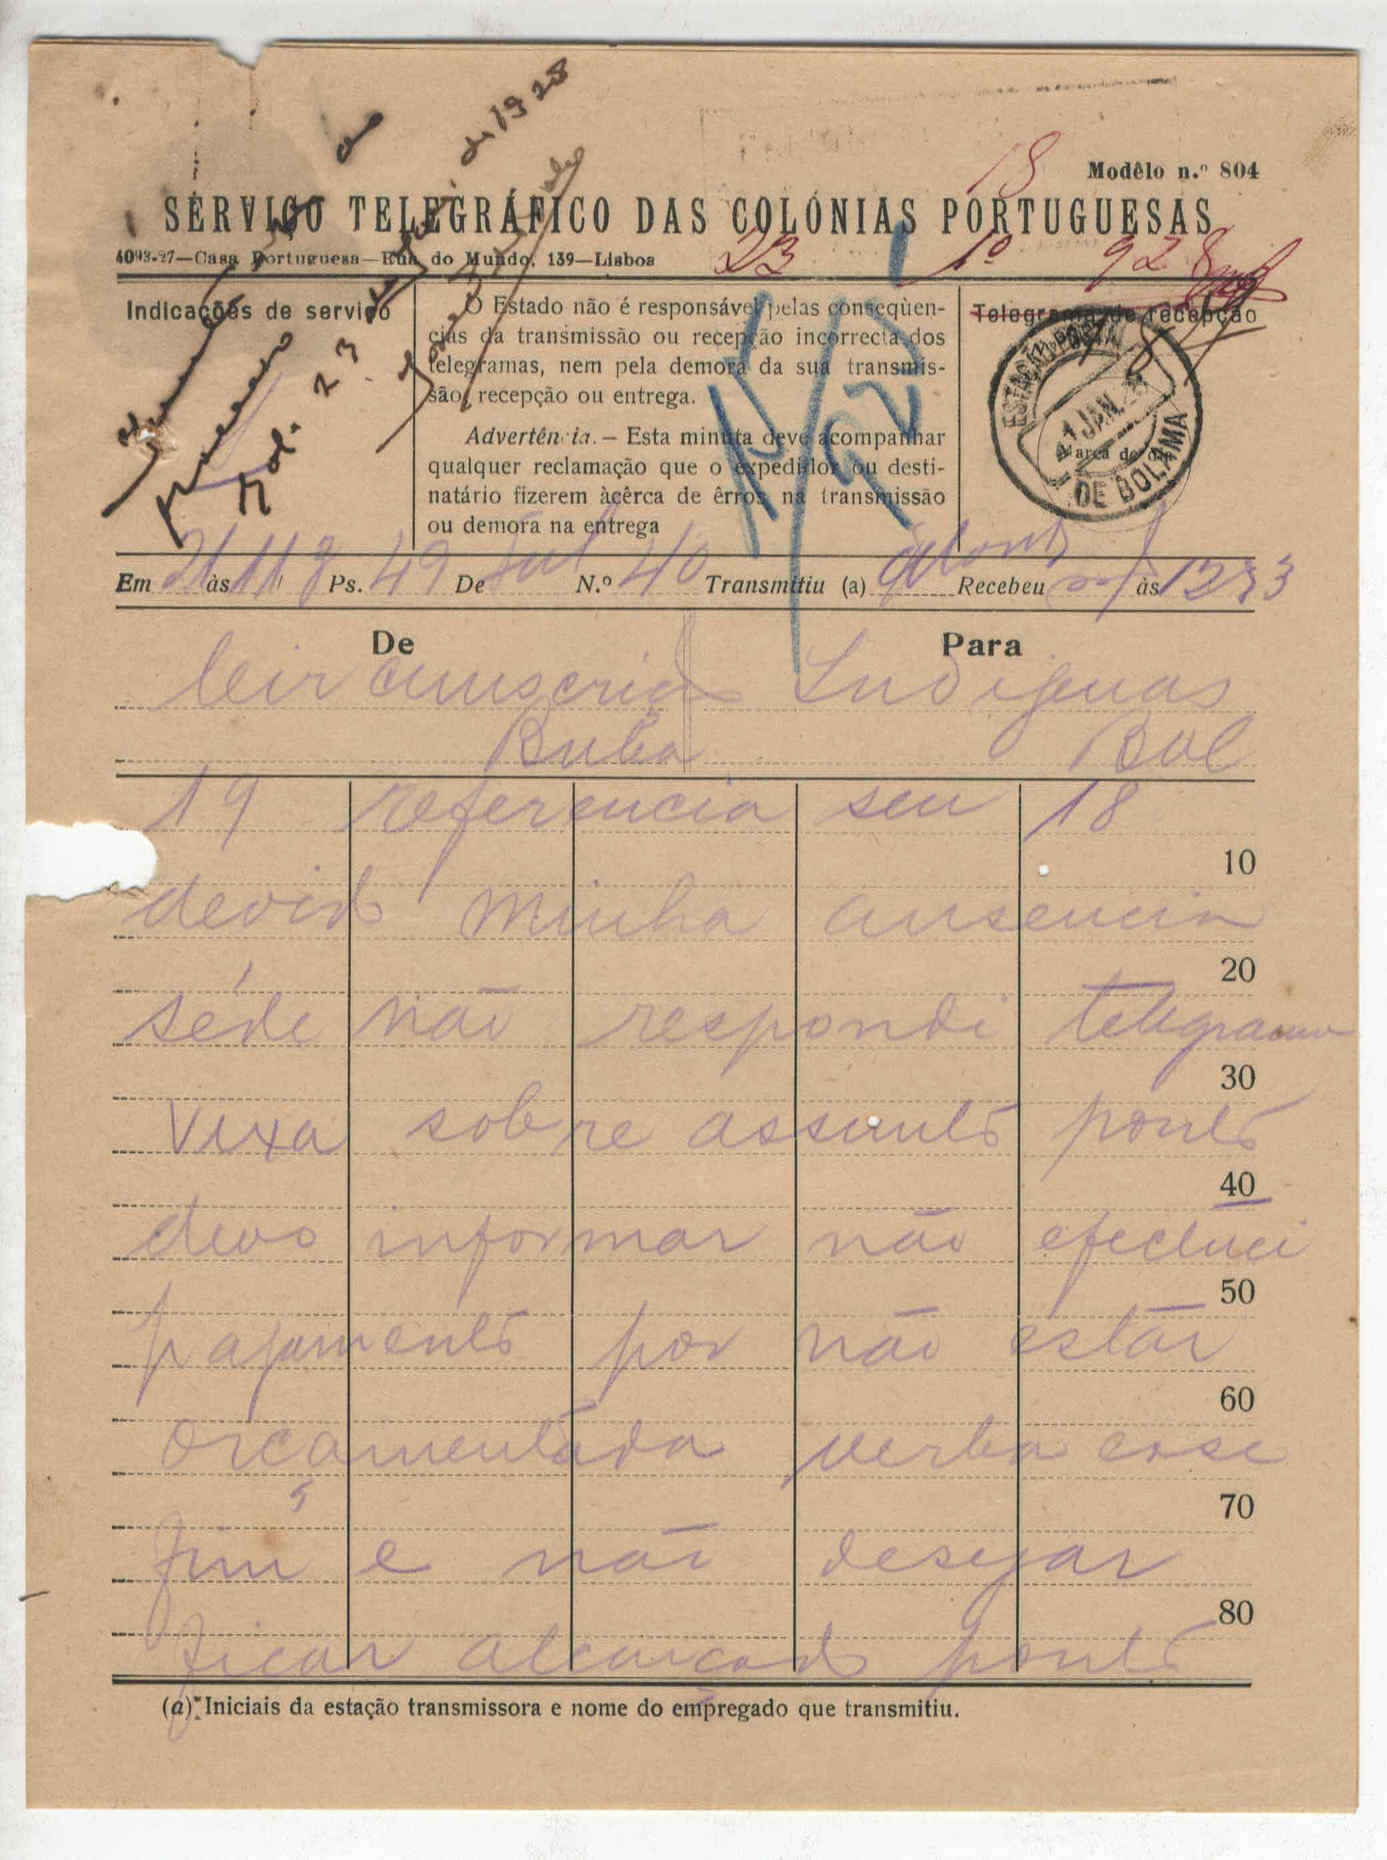 de 1928
18
Modêlo n.º 804
SERVIÇO TELEGRÁFICO DAS COLÓNIAS PORTUGUESAS
4093-27—Casa Portuguesa—Rua do Mundo, 139—Lisboa
23 1º 928
Indicações de serviço
Bol. 23
O Estado não é responsável pelas conseqüen-
cias da transmissão ou recepção incorrecta dos
telegramas, nem pela demora da sua transmis-
são, recepção ou entrega.
Advertência.— Esta minuta deve acompanhar
qualquer reclamação que o expedidor ou desti-
natário fizerem àcêrca de êrros na transmissão
ou demora na entrega
Telegrama de recepção
ESTAÇÃO POSTAL
21 JAN. 28
Marca do dia
DE BOLAMA
Em 21 às 11 8 Ps. 49 De Bul N.º 40 Transmitiu (a) Recebeu às 1233
De Para
Circunscrição Indigenas
Buba Bol
19 referencia seu 18
10
devido minha ausencia
20
séde não respondi telegrama
30
vexa sobre assunto ponto
40
devo informar não efectuei
50
pagamento por não estar
60
orçamentada verba esse
70
fim e não desejar
80
ficar alcançado ponto
(a) Iniciais da estação transmissora e nome do empregado que transmitiu.